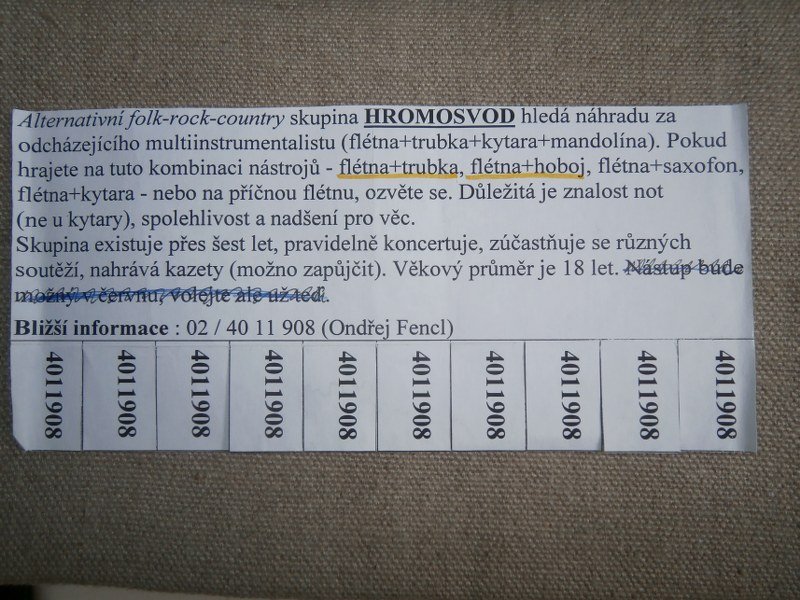 Alternativní folk-rock-country skupina HROMOSVOD hledá náhradu za
odcházejícího multiinstrumentalistu (flétna+trubka+kytara+mandolína). Pokud
hrajete na tuto kombinaci nástrojů - flétna+trubka, flétna+hoboj, flétna+saxofon,
flétna+kytara - nebo na příčnou flétnu, ozvěte se. Důležitá je znalost not
(ne u kytary), spolehlivost a nadšení pro věc.
Skupina existuje přes šest let, pravidelně koncertuje, zúčastňuje se různých
soutěží, nahrává kazety (možno zapůjčit). Věkový průměr je 18 let. Nástup bude
možný v červnu, volejte ale už teď.
Bližší informace : 02 / 40 11 908 (Ondřej Fencl)
4011908
4011908
4011908
4011908
4011908
4011908
4011908
4011908
4011908
4011908